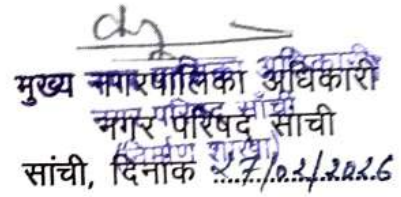 मुख्य नगरपालिका अधिकारी
नगर परिषद साची
सांची, दिनांक 27/02/2026